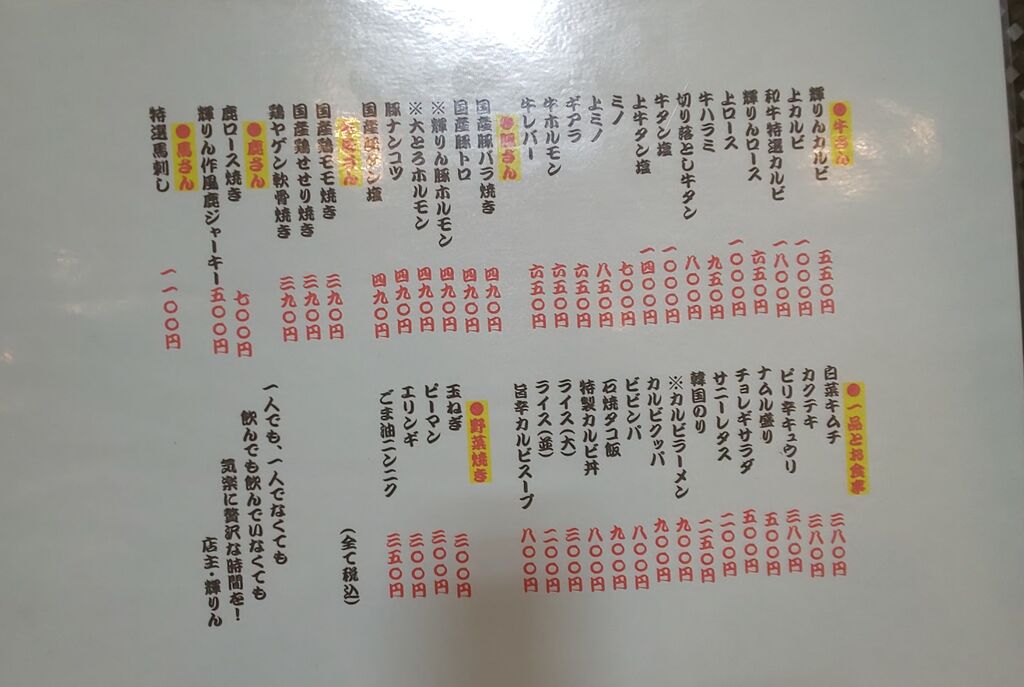 ●牛さん
輝りんカルビ 五五〇円
上カルビ 一〇〇〇円
和牛特選カルビ 一八〇〇円
輝りんロース 六五〇円
上ロース 一〇〇〇円
牛ハラミ 九五〇円
切り落とし牛タン 八〇〇円
牛タン塩 一〇〇〇円
上牛タン塩 一四〇〇円
ミノ 七〇〇円
上ミノ 八五〇円
ギアラ 六五〇円
牛ホルモン 六五〇円
牛レバー 六五〇円
●豚さん
国産豚バラ焼き 四九〇円
国産豚トロ 四九〇円
※輝りん豚ホルモン 四九〇円
※大とろホルモン 四九〇円
豚ナンコツ 四九〇円
国産豚タン塩 四九〇円
●鶏さん
国産鶏モモ焼き 三九〇円
国産鶏せせり焼き 三九〇円
鶏ヤゲン軟骨焼き 三九〇円
●鹿さん
鹿ロース焼き 七〇〇円
輝りん作風鹿ジャーキー 五〇〇円
●馬さん
特選馬刺し 一一〇〇円
●一品とお食事
白菜キムチ 三八〇円
カクテキ 三八〇円
ピリ辛キュウリ 三八〇円
ナムル盛り 五〇〇円
チョレギサラダ 五〇〇円
サニーレタス 二〇〇円
韓国のり 一五〇円
※カルビラーメン 九〇〇円
カルビクッパ 九〇〇円
ビビンバ 八〇〇円
石焼タコ飯 九〇〇円
特製カルビ丼 八〇〇円
ライス(大) 三〇〇円
ライス(並) 二〇〇円
旨辛カルビスープ 八〇〇円
●野菜焼き
玉ねぎ 三〇〇円
ピーマン 三〇〇円
エリンギ 三〇〇円
ごま油ニンニク 三五〇円
(全て税込)
一人でも、一人でなくても
飲んでも飲んでいなくても
気楽に贅沢な時間を!
店主・輝りん